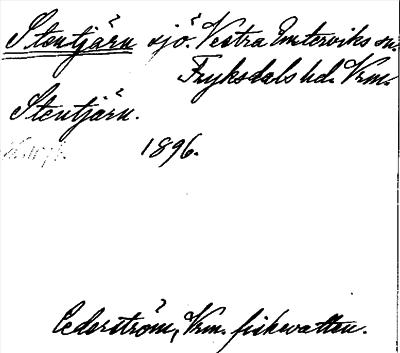 Stentjärn sjö. Vestra Emterviks sn.
Fryksdals hd. Vrm.
Stentjärn.
1896.
Cederström, Vrm. fiskevatten.